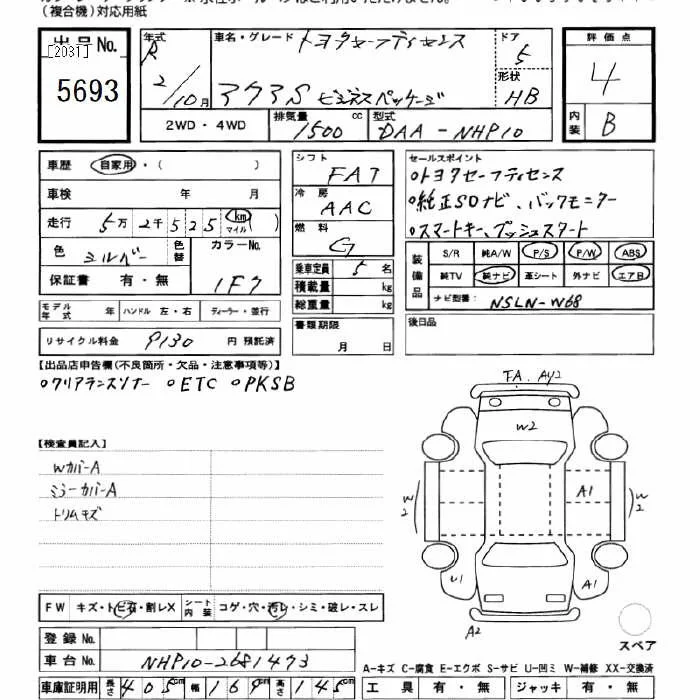 (複合機)対応用紙
出品No.
[2031]
5693
年式
R
2/10月
車名・グレード
トヨタセーフティセンス
アクアS ビジネスパッケージ
ドア
5
形状
HB
評価点
4
内装
B
2WD・4WD
排気量
1500 cc
型式
DAA-NHP10
車歴 自家用・( )
車検 年 月
走行 5万2千525 km マイル( )
色 シルバー
色替
カラーNo.
1F7
保証書 有・無
シフト
FAT
冷房
AAC
燃料
G
乗車定員 5 名
積載量 kg
総重量 kg
セールスポイント
○トヨタセーフティセンス
○純正SDナビ、バックモニター
○スマートキー、プッシュスタート
装備品
S/R 純A/W P/S P/W ABS
純TV 純ナビ 革シート 外ナビ エアB
ナビ型番: NSLN-W68
モデル年式 年 ハンドル 左・右 ディーラー・並行
リサイクル料金 9130 円 預託済
書類期限
月 日
後日品
【出品店申告欄(不良箇所・欠品・注意事項等)】
○クリアランスソナー ○ETC ○PKSB
【検査員記入】
WカバーA
ミラーカバーA
トリムキズ
FA. AY2
W2
W2
A1
W2
U1
A1
A2
スペア
FW キズ・トビ石・割レX
シート内装 コゲ・穴・汚レ・シミ・破レ・スレ
登録No.
車台No. NHP10-2681473
車庫証明用 長さ 405cm 幅 169cm 高さ 145cm
A-キズ C-腐食 E-エクボ S-サビ U-凹ミ W-補修 XX-交換済
工具 有・無 ジャッキ 有・無